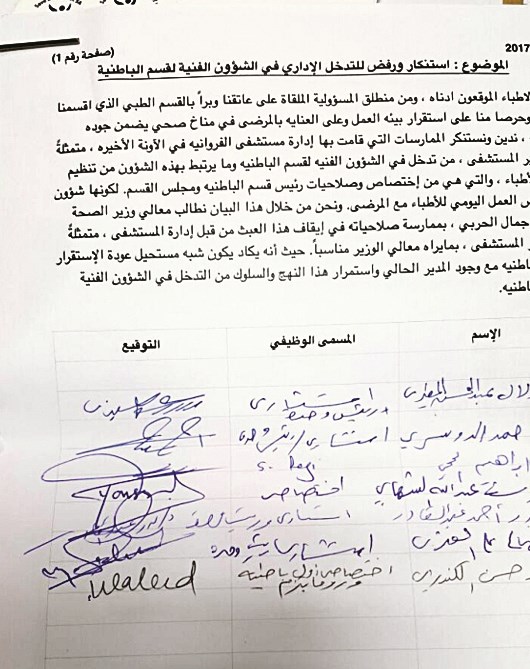 2017
(صفحة رقم 1)
الموضوع : استنكار ورفض للتدخل الإداري في الشؤون الفنية لقسم الباطنية
لاطباء الموقعون ادناه ، ومن منطلق المسؤولية الملقاة على عاتقنا وبراً بالقسم الطبي الذي اقسمنا
وحرصا منا على استقرار بيئه العمل وعلى العنايه بالمرضى في مناخ صحي يضمن جوده
، ندين ونستنكر الممارسات التي قامت بها إدارة مستشفى الفروانيه في الآونة الأخيره ، متمثلةً
ير المستشفى ، من تدخل في الشؤون الفنيه لقسم الباطنيه وما يرتبط بهذه الشؤون من تنظيم
لأطباء ، والتي هي من إختصاص وصلاحيات رئيس قسم الباطنيه ومجلس القسم. لكونها شؤون
س العمل اليومي للأطباء مع المرضى. ونحن من خلال هذا البيان نطالب معالي وزير الصحة
جمال الحربي ، بممارسة صلاحياته في إيقاف هذا العبث من قبل إدارة المستشفى ، متمثلةً
ر المستشفى ،بمايراه معالي الوزير مناسباً. حيث أنه يكاد يكون شبه مستحيل عودة الإستقرار
اطنيه مع وجود المدير الحالي واستمرار هذا النهج والسلوك من التدخل في الشؤون الفنية
باطنيه.
الإسم المسمى الوظيفي التوقيع
استشاري
حمد الدوسري استشاري
ابراهيم
عبدالله اختصاصي
أحمد عبدالقادر استشاري
علي العنزي استشاري
حسن الكندري اختصاصي أول باطنية Waleed